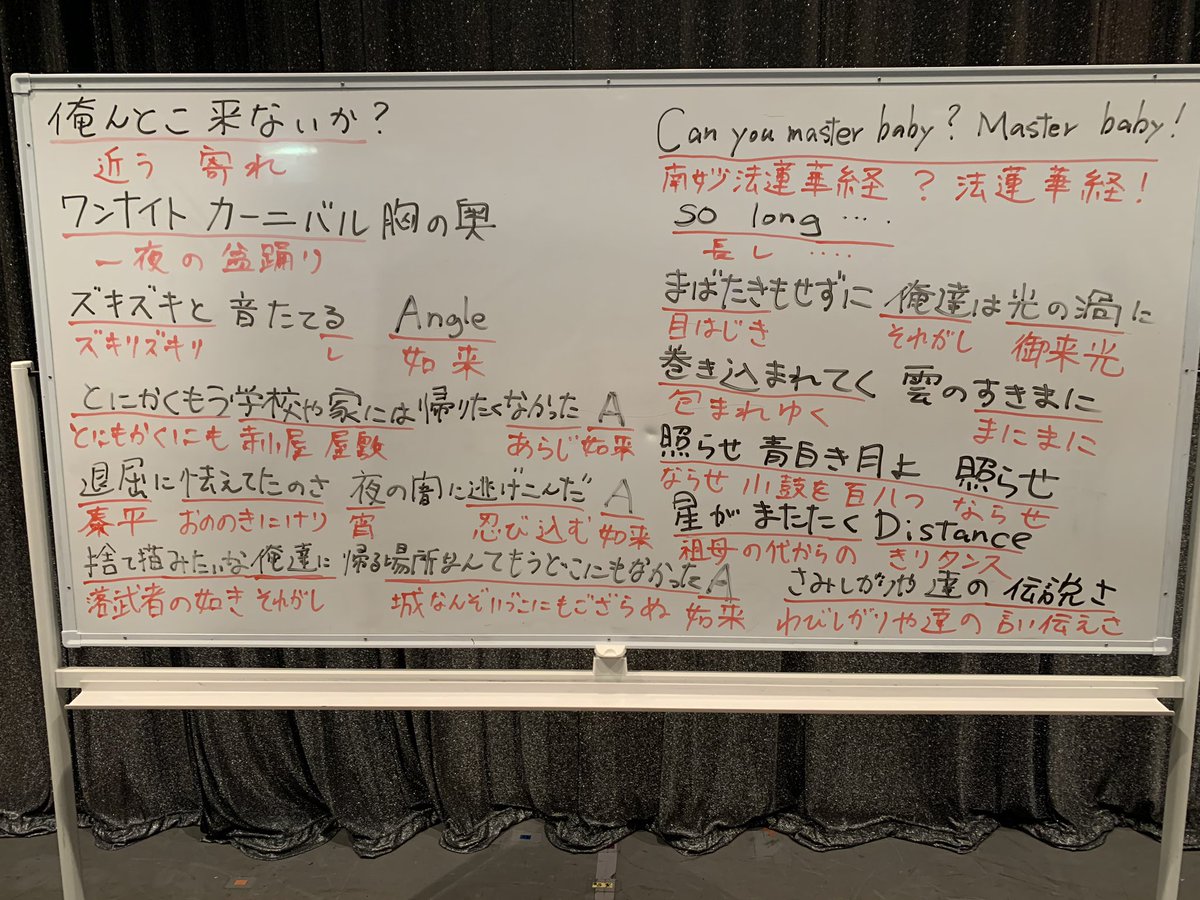 俺んとこ来ないか?
近う 寄れ
ワンナイト カーニバル 胸の奥
一夜の 盆踊り
ズキズキと 音たてる Angle
ズキリズキリ し 如来
とにかくもう学校や家には帰りたくなかった A
とにもかくにも 寺小屋 屋敷 あらじ 如来
退屈に怯えてたのさ 夜の闇に逃げこんだ A
泰平 おののきにけり 宵 忍び込む 如来
捨て猫みたいな俺達に 帰る場所なんてもうどこにもなかった A
落武者の如き それがし 城なんぞいづこにもござらぬ 如来
Can you master baby? Master baby!
南妙法蓮華経 ? 法蓮華経!
so long ‥‥
長し ‥‥
まばたきもせずに 俺達は光の渦に
目はじき それがし 御来光
巻き込まれてく 雲のすきまに
包まれゆく まにまに
照らせ 青白き月よ 照らせ
ならせ 小鼓を 百八つ ならせ
星が またたく Distance
祖母の代からの きりタンス
さみしがりや達の 伝説さ
わびしがりや達の 言い伝えさ